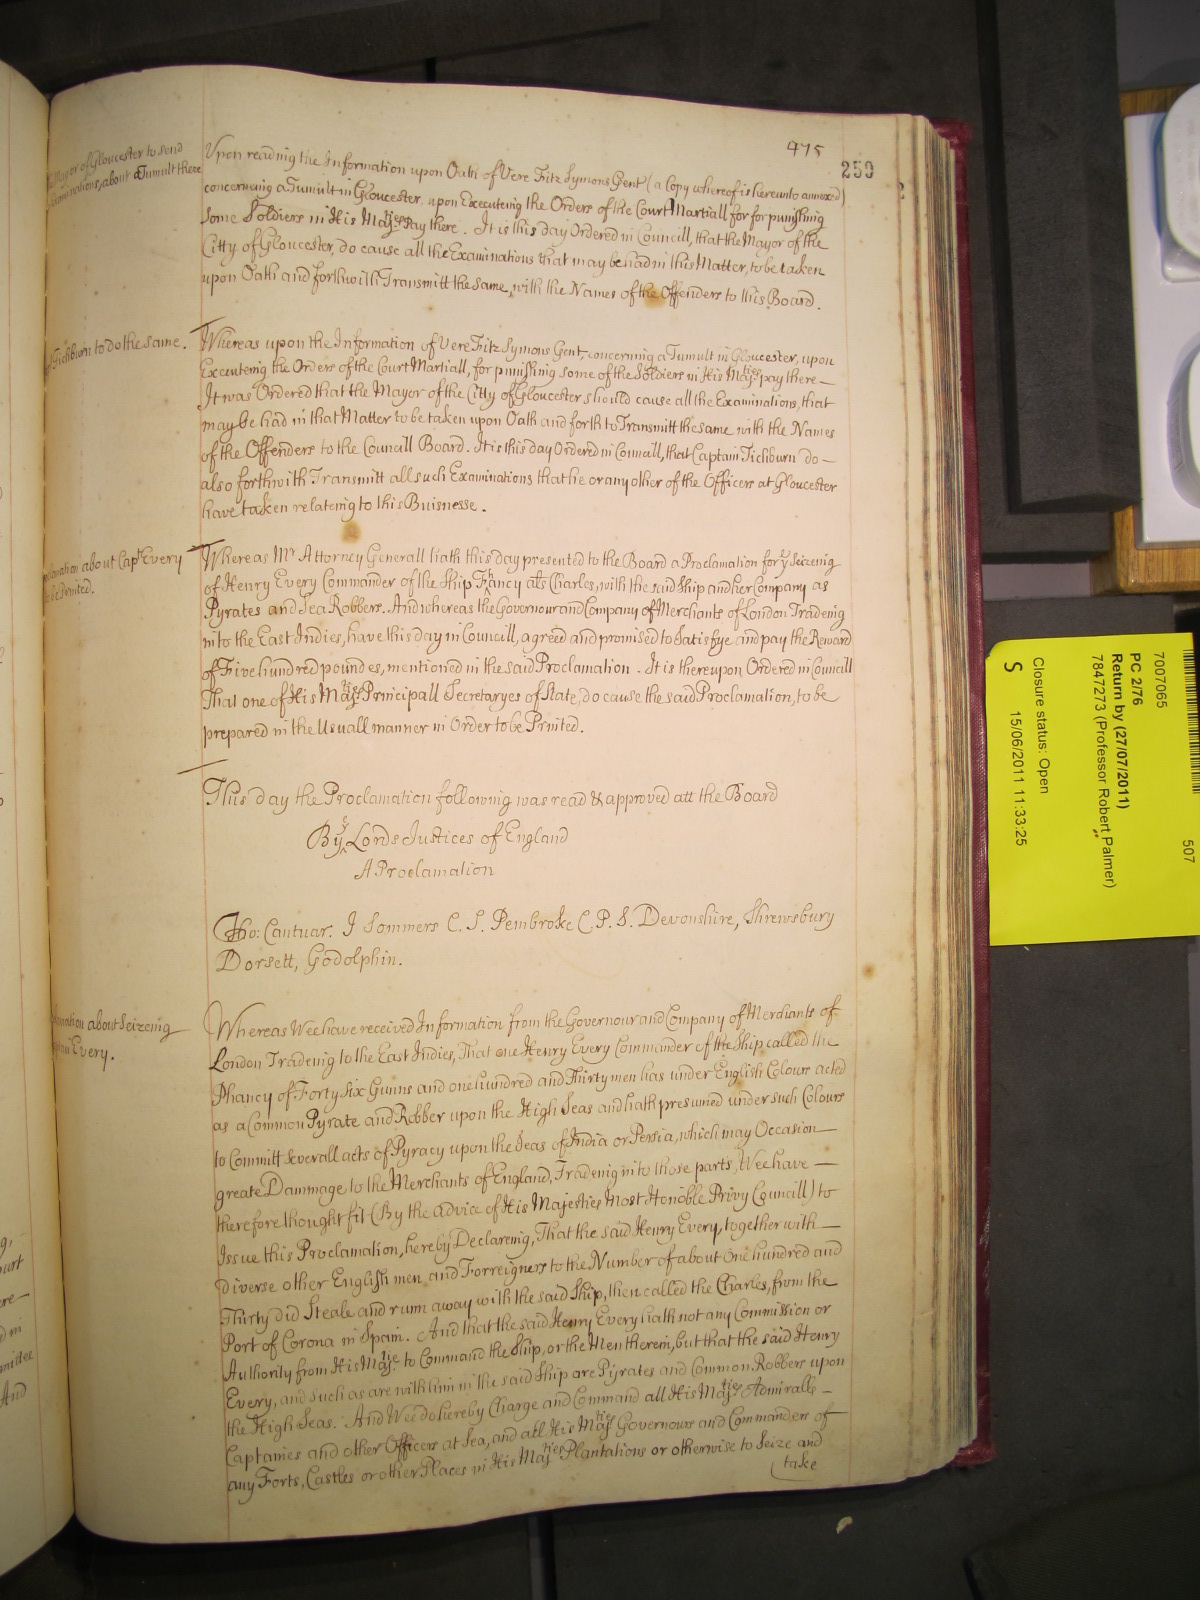 475
259
Mayor of Gloucester to send
Examinations, about a Tumult there
Upon reading the Information upon Oath of Vere Fitz Symons Gent (a Copy whereof is hereunto annexed)
concerning a Tumult in Gloucester, upon Executeing the Orders of the Court Martiall for for punishing
some Soldiers in His Maj:ties pay there. It is this day Ordered in Councill, that the Mayor of the
Citty of Gloucester, do cause all the Examinations that may be had in this Matter, to be taken
upon Oath and forthwith Transmitt the same, with the Names of the Offenders to this Board.
Tichburn to do the same.
Whereas upon the Information of Vere Fitz Symons Gent, concerning a Tumult in Gloucester, upon
Executeing the Orders of the Court Martiall, for punishing some of the Soldiers in His Maj:ties pay there —
It was Ordered that the Mayor of the Citty of Gloucester should cause all the Examinations, that
may be had in that Matter to be taken upon Oath and forth to Transmitt the same with the Names
of the Offenders to the Councill Board. It is this day Ordered in Councill, that Captain Tichburn do —
also forthwith Transmitt all such Examinations that he or any other of the Officers at Gloucester
have taken relateing to this Buisnesse.
about Capt Every
to be Printed.
Whereas Mr Attorney Generall hath this day presented to the Board a Proclamation for ye Seizeing
of Henry Every Commander of the Ship Fancy als Charles, with the said Ship and her Company as
Pyrates and Sea Robbers. And whereas the Governour and Company of Merchants of London Tradeing
into the East Indies, have this day in Councill, agreed and promised to Satisfye and pay the Reward
of Five hundred poundes, mentioned in the said Proclamation. It is thereupon Ordered in Councill
That one of His Maj:ties Principall Secretaryes of State, do cause the said Proclamation, to be
prepared in the Usuall manner in Order to be Printed.
This day the Proclamation following was read & approved att the Board
By ye Lords Justices of England
A Proclamation
Tho: Cantuar. J Sommers C. S. Pembroke C. P. S. Devonshire, Shrewsbury
Dorsett, Godolphin.
about Seizeing
Every.
Whereas Wee have received Information from the Governour and Company of Merchants of
London Tradeing to the East Indies, That one Henry Every Commander of the Ship called the
Phancy of Forty Six Gunns and one hundred and Thirty men has under English Colours acted
as a Common Pyrate and Robber upon the High Seas and hath presumed under such Colours
to Committ Severall acts of Pyracy upon the Seas of India or Persia, which may Occasion —
greate Dammage to the Merchants of England, Tradeing into those parts, Wee have —
therefore thought fit (By the advice of His Majesties Most Honoble Privy Councill) to
Issue this Proclamation, hereby Declareing, That the said Henry Every, together with —
diverse other English men and Forreigners to the Number of about One hundred and
Thirty did Steale and runn away with the said Ship, then called the Charles, from the
Port of Corona in Spain. And that the said Henry Every hath not any Commission or
Authority from His Maj:tie to Command the Ship, or the Men therein, but that the said Henry
Every, and such as are with him in the said Ship are Pyrates and Common Robbers upon
the High Seas. And Wee do hereby Charge and Command all His Maj:ties Admiralls —
Captaines and other Officers at Sea, and all His Maj:ties Governours and Commanders of
any Forts, Castles or other Places in His Maj:ties Plantations or otherwise to Seize and
take
7007065
507
PC 2/76
Return by (27/07/2011)
7847273 (Professor Robert Palmer)
Closure status: Open
S
15/06/2011 11:33:25